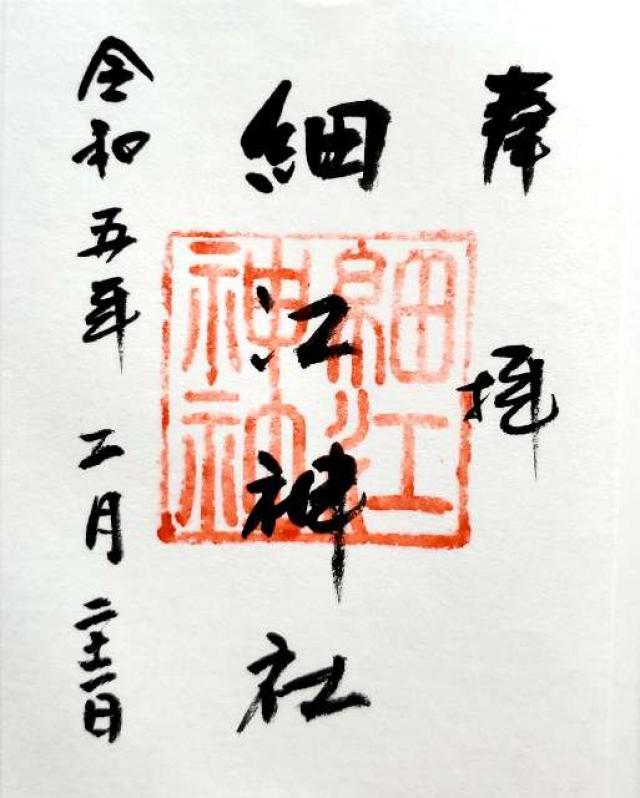 奉拝
細江神社
令和五年二月二十二日
細江
神社